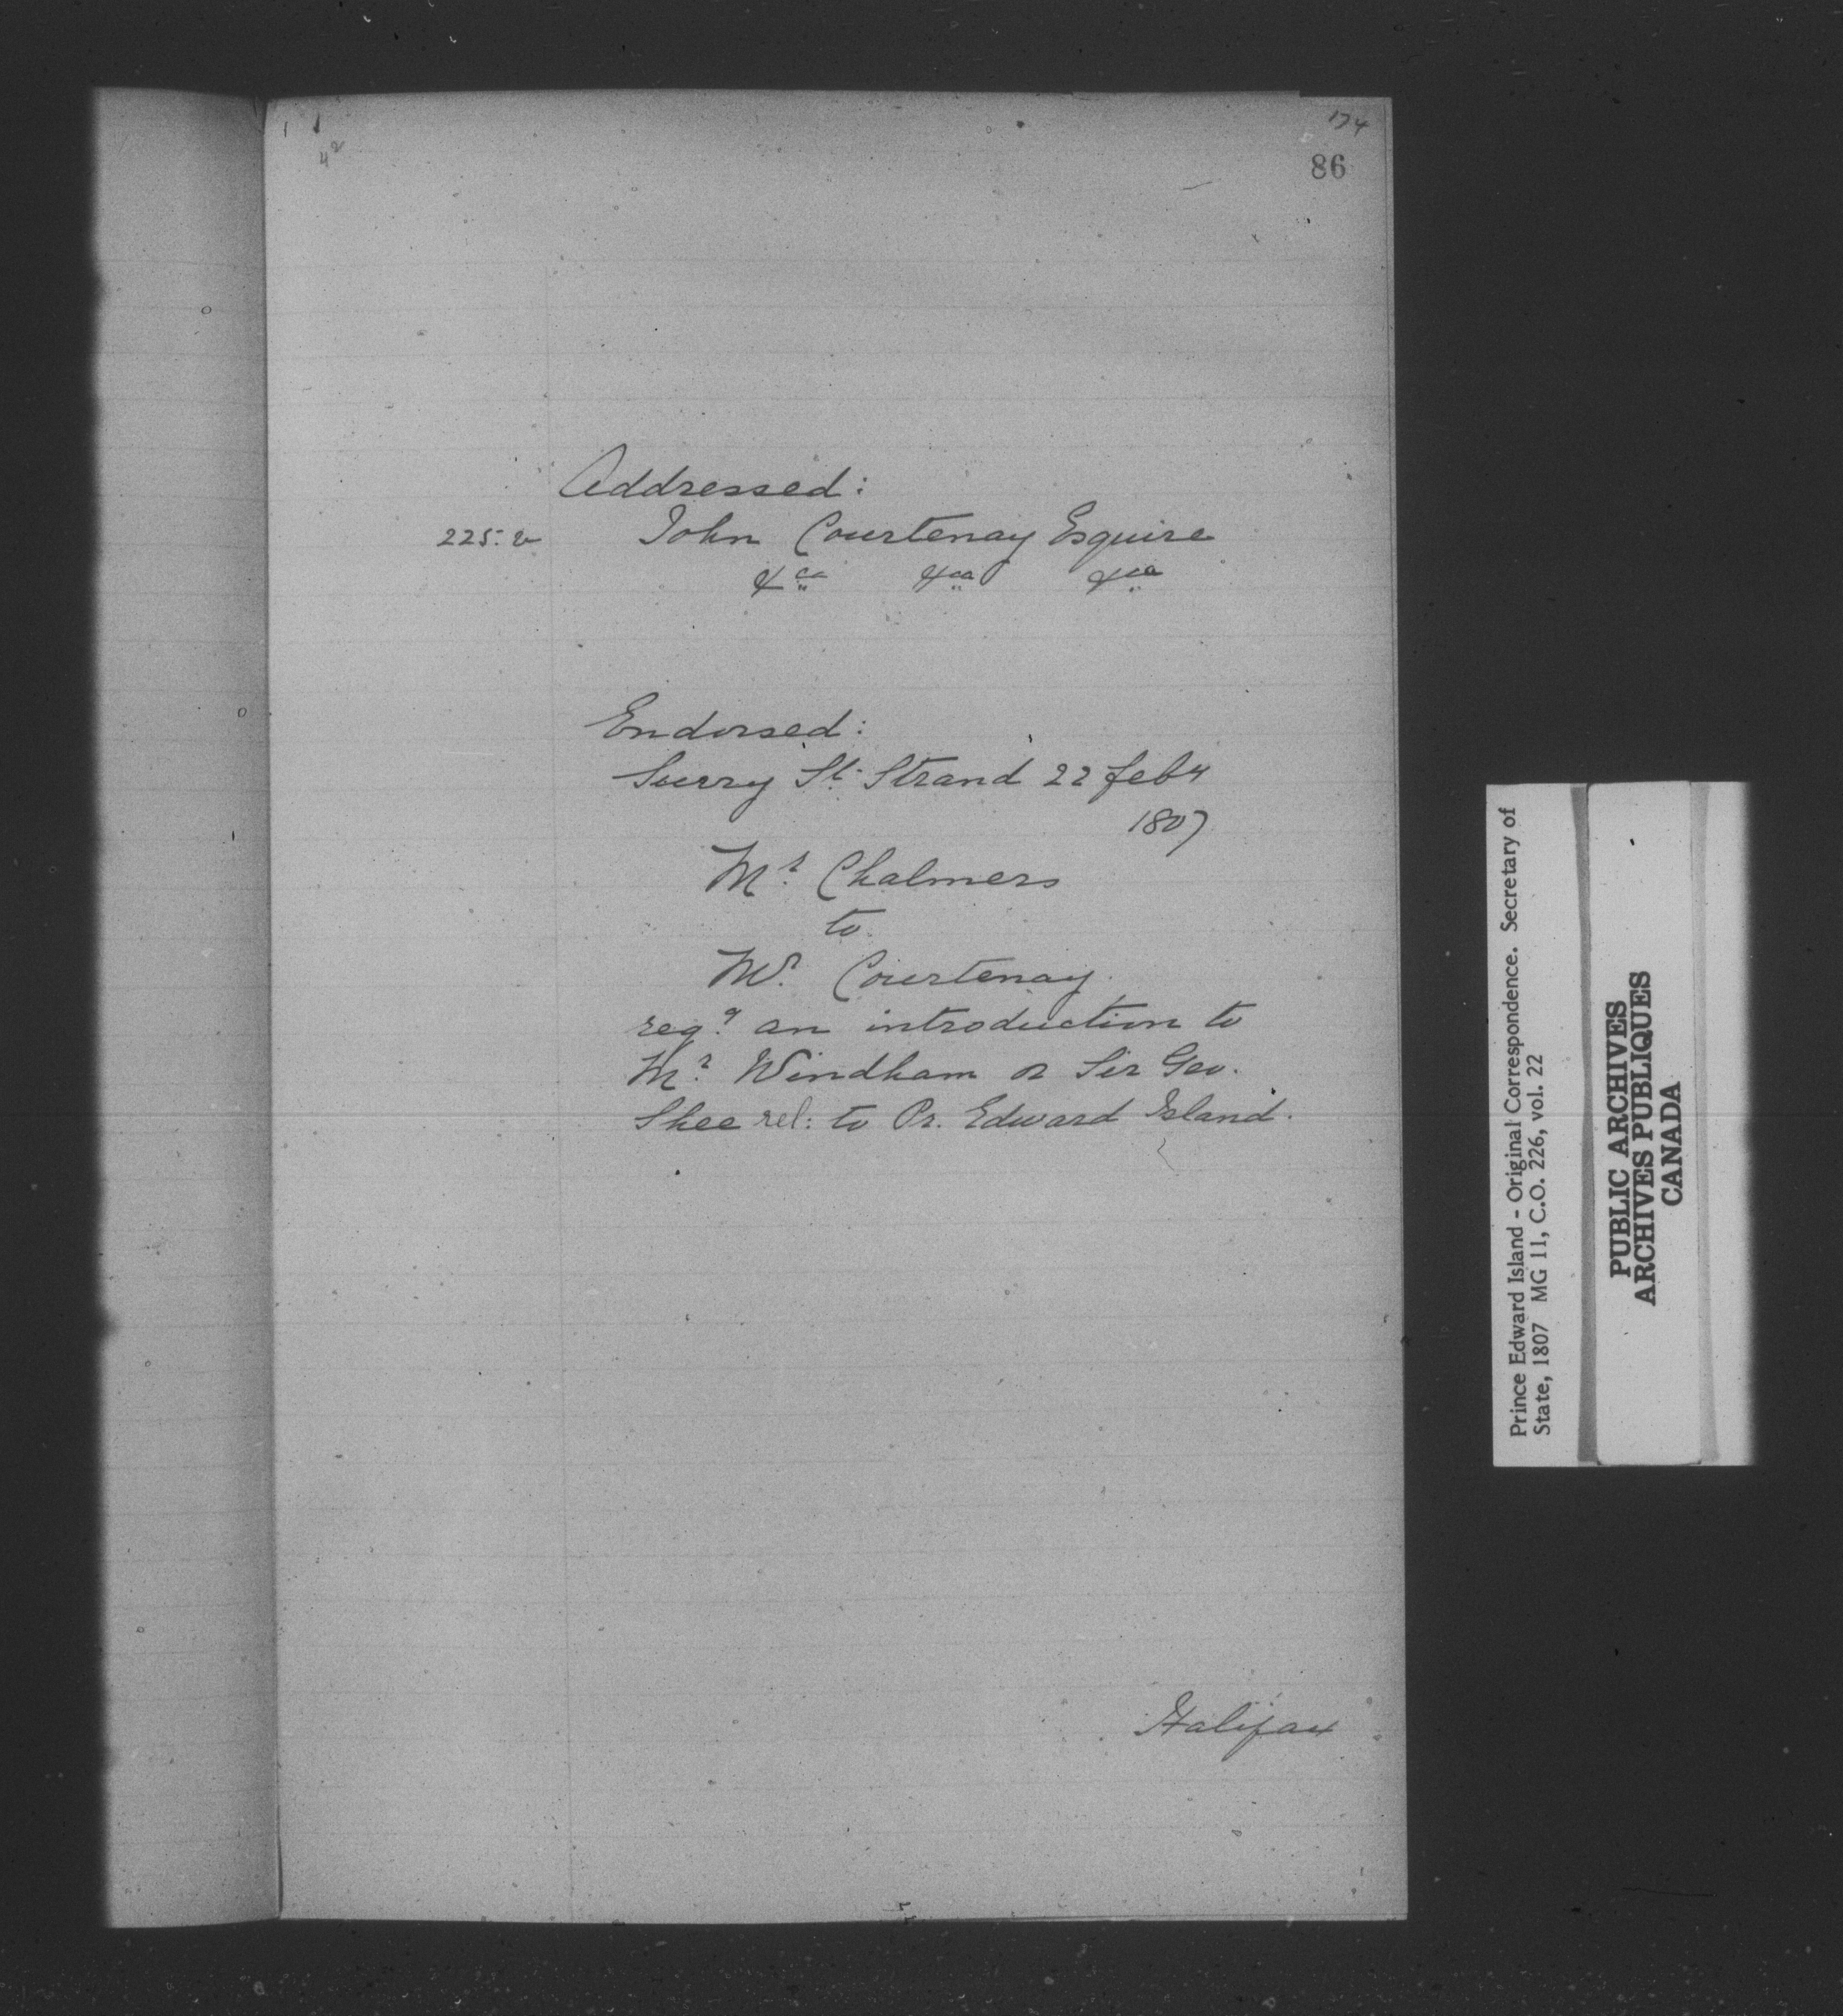 174
86
42
Addressed:
225. v John Courtenay Esquire
&ca &ca &ca
Endorsed:
Surry St. Strand 22 Feby
1807
Mr. Chalmers
to
Mr. Courtenay
reqg. an introduction to
Mr. Windham or Sir Geo.
Shee rel: to Pr. Edward Island.
Halifax
Prince Edward Island - Original Correspondence. Secretary of
State, 1807 MG 11, C.O. 226, vol. 22
PUBLIC ARCHIVES
ARCHIVES PUBLIQUES
CANADA